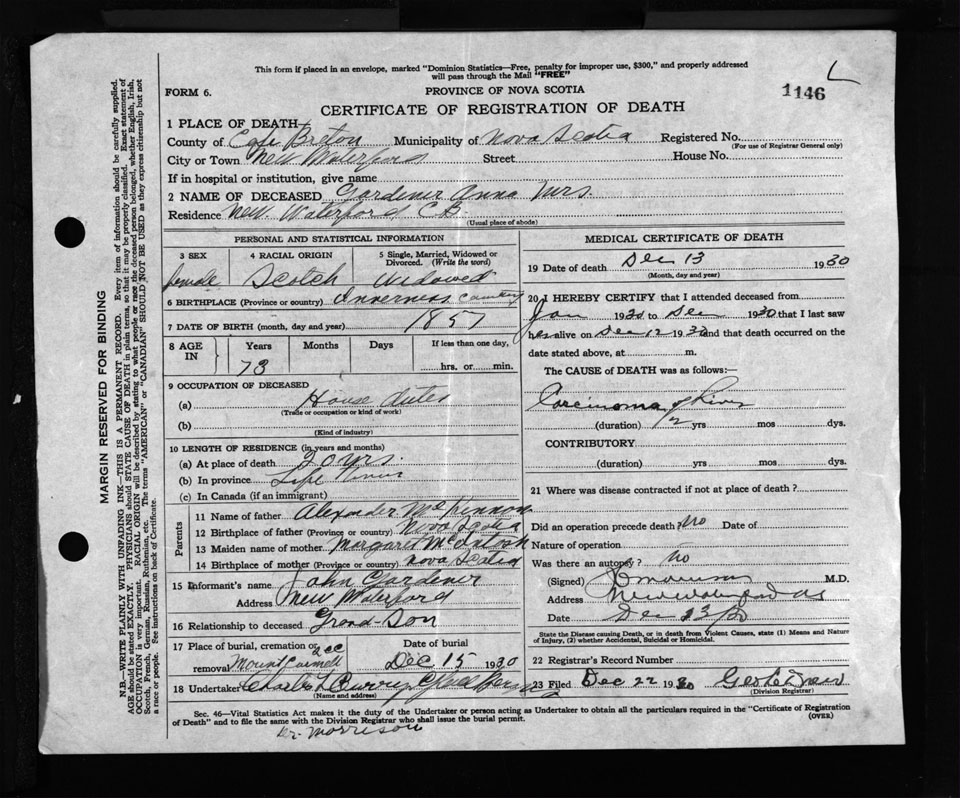 This form if placed in an envelope, marked "Dominion Statistics—Free, penalty for improper use, $300," and properly addressed
will pass through the Mail "FREE"
FORM 6.
PROVINCE OF NOVA SCOTIA
1146
CERTIFICATE OF REGISTRATION OF DEATH
1 PLACE OF DEATH
County of Cape Breton Municipality of Nova Scotia Registered No.
(For use of Registrar General only)
City or Town New Waterford Street House No.
If in hospital or institution, give name
2 NAME OF DECEASED Gardener Anna Mrs.
Residence New Waterford C.B.
(Usual place of abode)
PERSONAL AND STATISTICAL INFORMATION
3 SEX 4 RACIAL ORIGIN 5 Single, Married, Widowed or
Divorced. (Write the word)
female Scotch Widowed
6 BIRTHPLACE (Province or country) Inverness County
7 DATE OF BIRTH (month, day and year) 1857
8 AGE IN Years Months Days If less than one day,
73 hrs. or min.
9 OCCUPATION OF DECEASED
(a) House duties
(Trade or occupation or kind of work)
(b)
(Kind of industry)
10 LENGTH OF RESIDENCE (in years and months)
(a) At place of death 20 yrs.
(b) In province Life time
(c) In Canada (if an immigrant)
Parents
11 Name of father Alexander McKinnon
12 Birthplace of father (Province or country) Nova Scotia
13 Maiden name of mother Margaret McIntosh
14 Birthplace of mother (Province or country) Nova Scotia
15 Informant's name John Gardener
Address New Waterford
16 Relationship to deceased Grand-Son
17 Place of burial, cremation or Date of burial
removal Mount Carmel Dec 15 1930
18 Undertaker Charles
(Name and address)
MEDICAL CERTIFICATE OF DEATH
19 Date of death Dec 13 1930
(Month, day and year)
20 I HEREBY CERTIFY that I attended deceased from
Jan 1930 to Dec 1930 that I last saw
her alive on Dec 12 1930 and that death occurred on the
date stated above, at m.
The CAUSE of DEATH was as follows:—
Carcinoma of Liver
(duration) 2 yrs mos dys.
CONTRIBUTORY
(duration) yrs mos dys.
21 Where was disease contracted if not at place of death ?
Did an operation precede death? No Date of
Nature of operation
Was there an autopsy? No
(Signed) Morrison M.D.
Address New Waterford
Date Dec
State the Disease causing Death, or in death from Violent Causes, state (1) Means and Nature
of Injury, (2) whether Accidental, Suicidal or Homicidal.
22 Registrar's Record Number
23 Filed Dec 22 1930
(Division Registrar)
Sec. 46—Vital Statistics Act makes it the duty of the Undertaker or person acting as Undertaker to obtain all the particulars required in the "Certificate of Registration
of Death" and to file the same with the Division Registrar who shall issue the burial permit.
(OVER)
Dr. Morrison
MARGIN RESERVED FOR BINDING
N.B.—WRITE PLAINLY WITH UNFADING INK—THIS IS A PERMANENT RECORD. Every item of information should be carefully supplied.
AGE should be stated EXACTLY. PHYSICIANS should STATE CAUSE OF DEATH in plain terms, so that it may be properly classified. Exact statement of
OCCUPATION is very important. RACIAL ORIGIN will be described by stating to what people or race the deceased person belonged, whether English, Irish,
Scotch, French, German, Russian, Ruthenian, etc. The terms "AMERICAN" or "CANADIAN" SHOULD NOT BE USED as they express citizenship but not
a race or people. See instructions on back of Certificate.